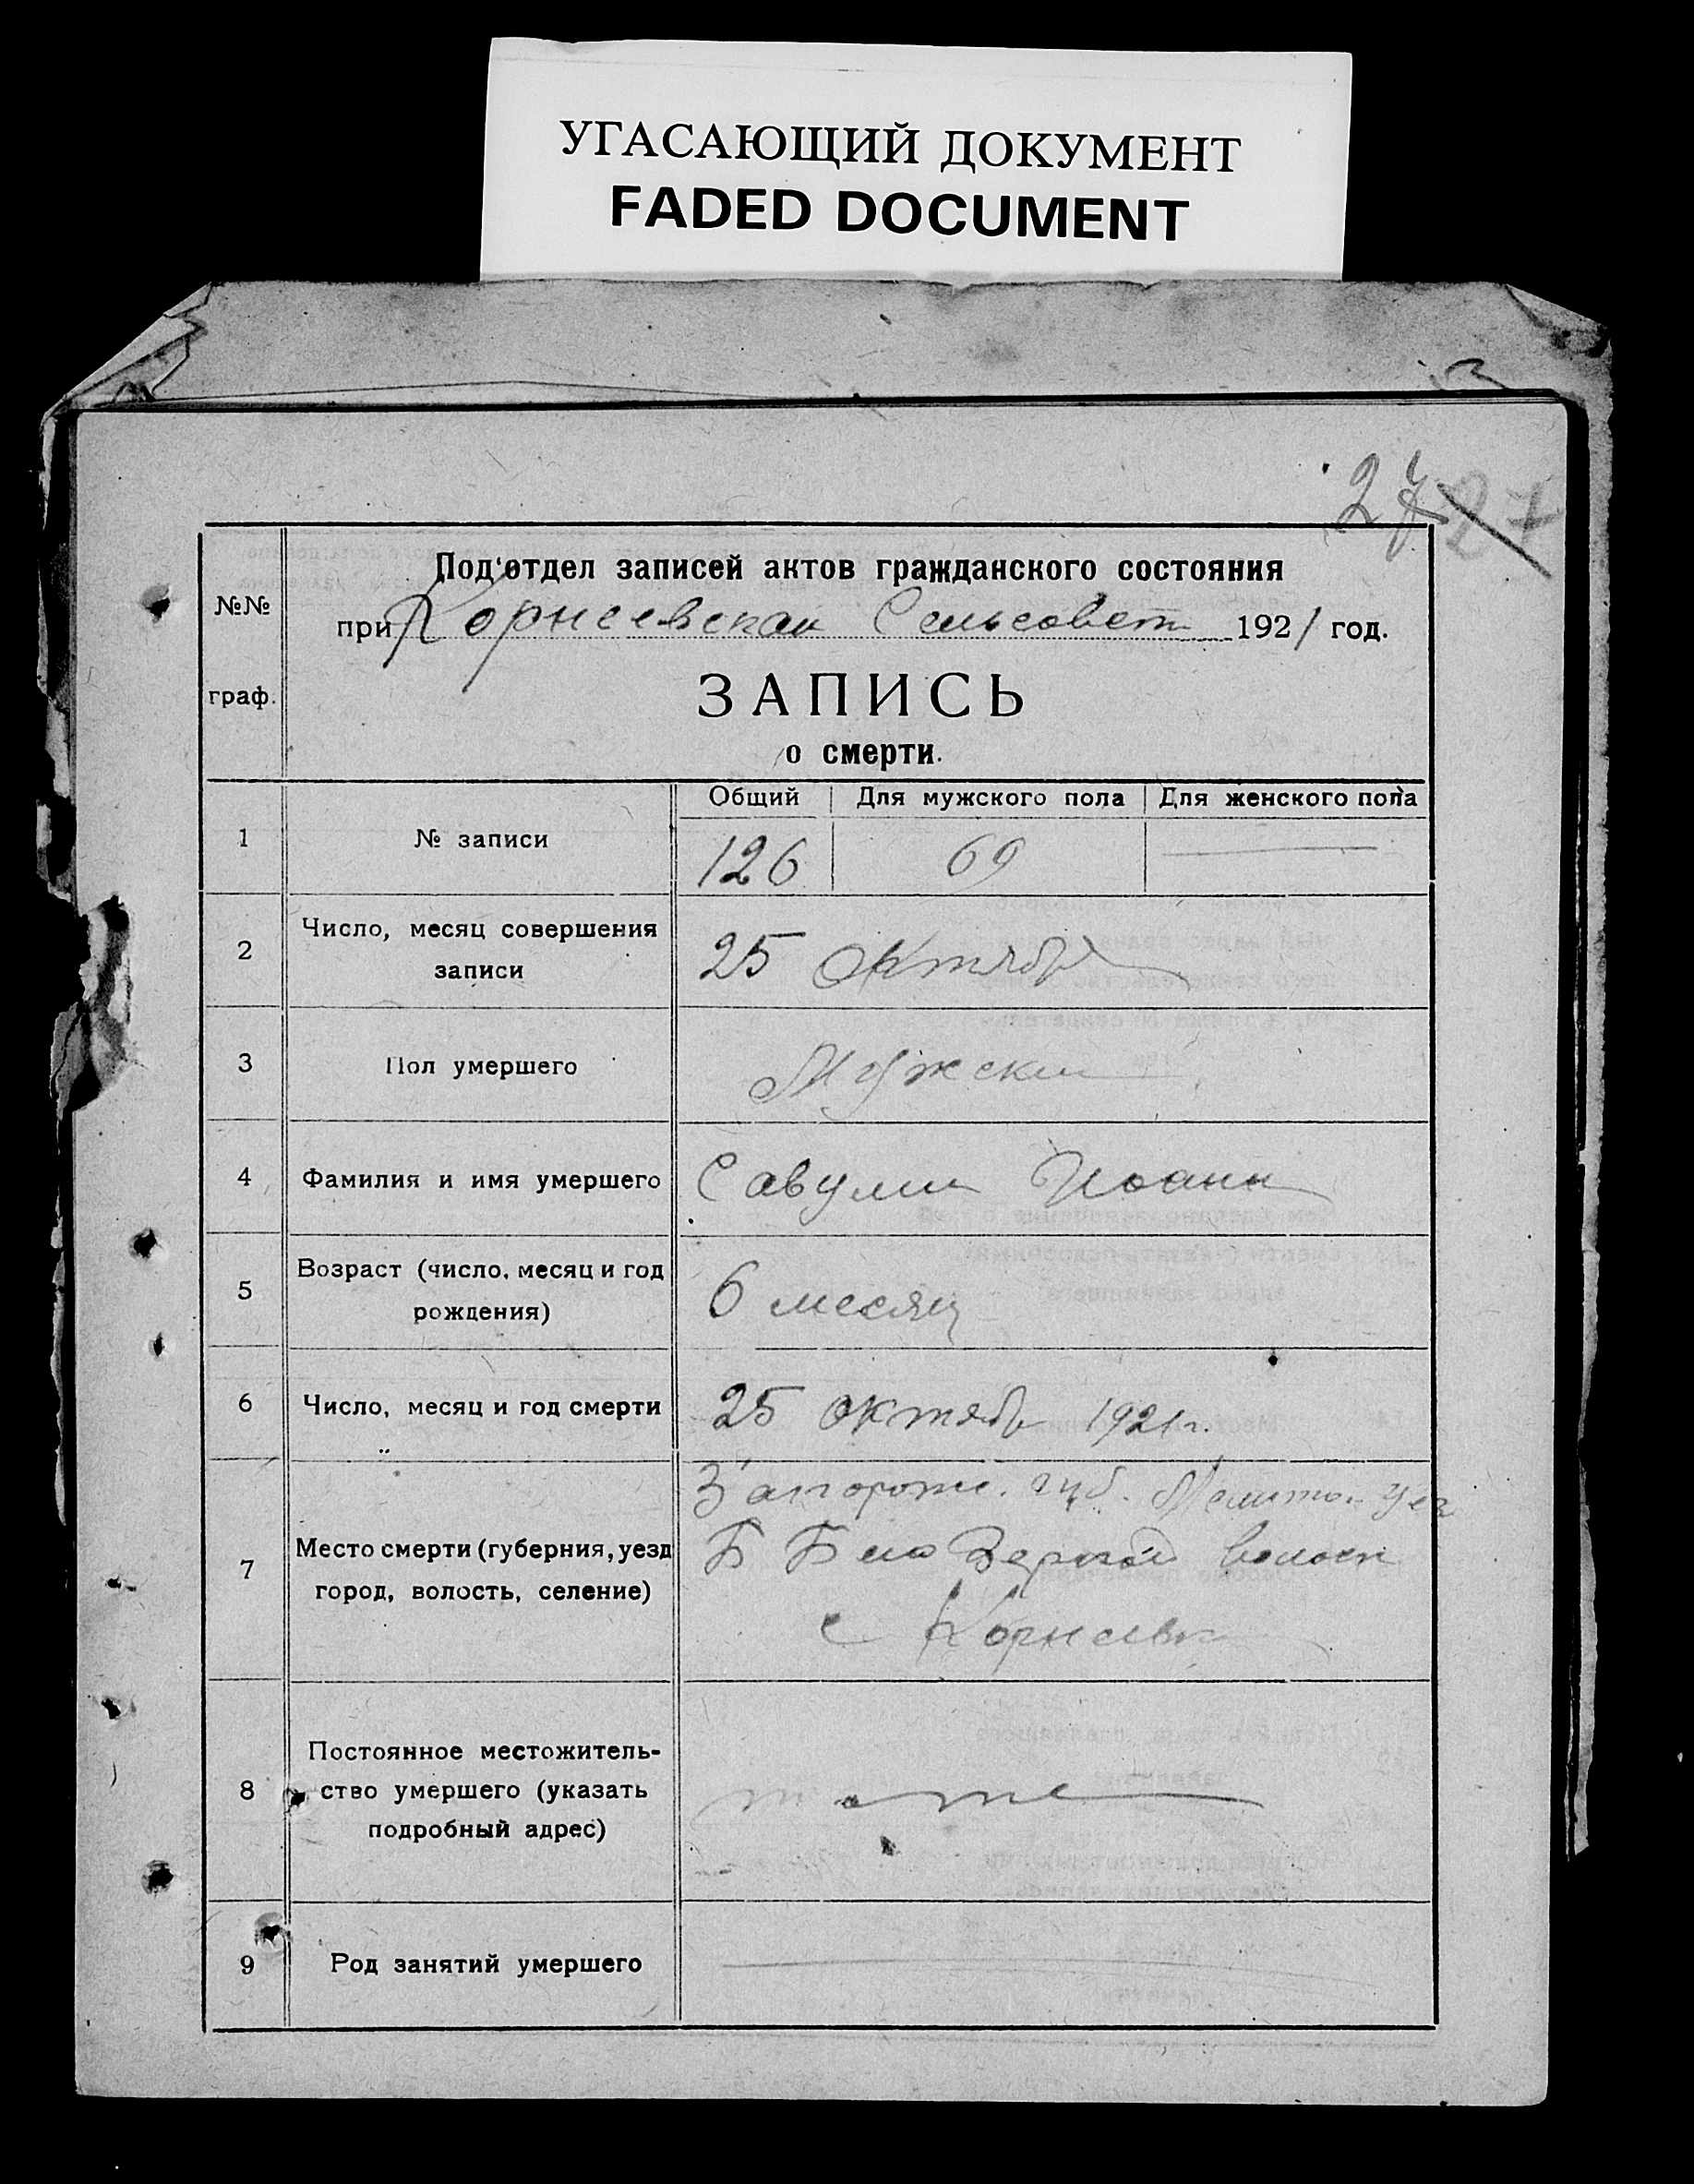 УГАСАЮЩИЙ ДОКУМЕНТ
FADED DOCUMENT
27 27
№№ граф.
Под'отдел записей актов гражданского состояния
при Корнеевской Сельсовет 1921 год.
ЗАПИСЬ
о смерти.
Общий Для мужского пола Для женского пола
1 № записи 126 69
2 Число, месяц совершения
записи 25 октября
3 Пол умершего Мужски
4 Фамилия и имя умершего Савулин Иоанн
5 Возраст (число, месяц и год
рождения) 6 месяц
6 Число, месяц и год смерти 25 октябр 1921 г.
Запорож. губ. Мелитоп Уез
7 Место смерти (губерния, уезд
город, волость, селение) Б волост
с Корнеевк
8 Постоянное местожитель-
ство умершего (указать
подробный адрес) тоже
9 Род занятий умершего